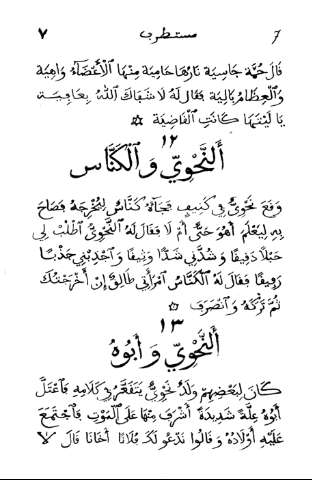 ٧ مستطرب 7
قَالَ حُمَّة جَاسِيَة نَارُهَا حَامِيَة مِنْهَا ٱلْأَعْضَآءُ وَاهِيَة
وَٱلْعِظَامُ بَالِيَة فَقَالَ لَهُ لَا شَفَاكَ ٱللّٰهُ بِعَافِيَة
يَا لَيْتَهَا كَانَتِ ٱلْقَاضِيَة ☆
١٢
أَلنَّحْوِيّ وَٱلْكَنَّاس
وَقَعَ نَحْوِيٌّ فِي كَنِيفٍ فَجَآءَهُ كَنَّاسٌ لِيُخْرِجَهُ فَصَاحَ
بِهِ لِيَعْلَمَ أَهُوَ حَيٌّ أَمْ لَا فَقَالَ لَهُ ٱلنَّحْوِيُّ ٱطْلُبْ لِي
حَبْلًا دَقِيقًا وَشُدَّنِي شَدًّا وَثِيقًا وَٱجْذِبْنِي جَذْبًا
رَفِيقًا فَقَالَ لَهُ ٱلْكَنَّاسُ ٱمْرَأَتِي طَالِقٌ إِنْ أَخْرَجْتُكَ
ثُمَّ تَرَكَهُ وَٱنْصَرَفَ ☆
١٣
أَلنَّحْوِيّ وَأَبُوهُ
كَانَ لِبَعْضِهِمْ وَلَدٌ نَحْوِيٌّ يَتَقَعَّرُ فِي كَلَامِهِ فَٱعْتَلَّ
أَبُوهُ عِلَّةً شَدِيدَةً أَشْرَفَ مِنْهَا عَلَى ٱلْمَوْتِ فَٱجْتَمَعَ
عَلَيْهِ أَوْلَادُهُ وَقَالُوا نَدْعُو لَكَ فُلَانًا أَخَانَا قَالَ لَا